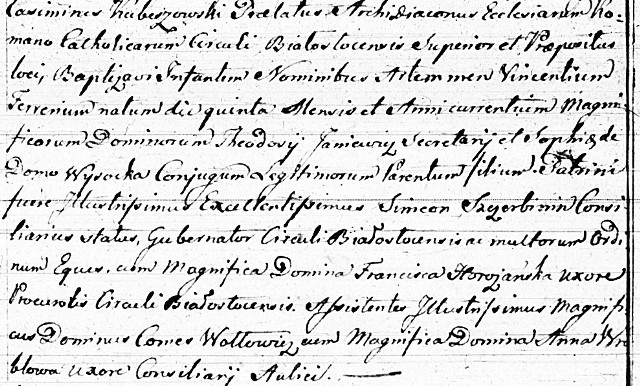 Casimirus Kubeszowski Prælatus Archidiaconus Ecclesiarum Ro-
mano Catholicarum Circuli Białostocensis Superior et Præpositus
loci, Baptizavi Infantem Nominibus Artemmen Vincentium
Ferrerium natum die quinta Mensis et Anni currentium Magni-
ficorum Dominorum Theodory Janiewicz Secretarij et Sophiæ de
Domo Wysocka Conjugum Legitimorum Parentum filium. Patrini
fuere Illustrissimus Excellentissimus Simeon Szczerbinin Consi
liarius status, Gubernator Circuli Białostocensis ac multorum Ordi
num Eques, cum Magnifica Domina Francisca Horożańska uxore
Procuroris Circuli Białostocensis. Assistentes Illustrissimus Magnifi
cus Dominus Comes Wołłowicz cum Magnifica Domina Anna Wró
blowa uxore Consiliarij Aulici.